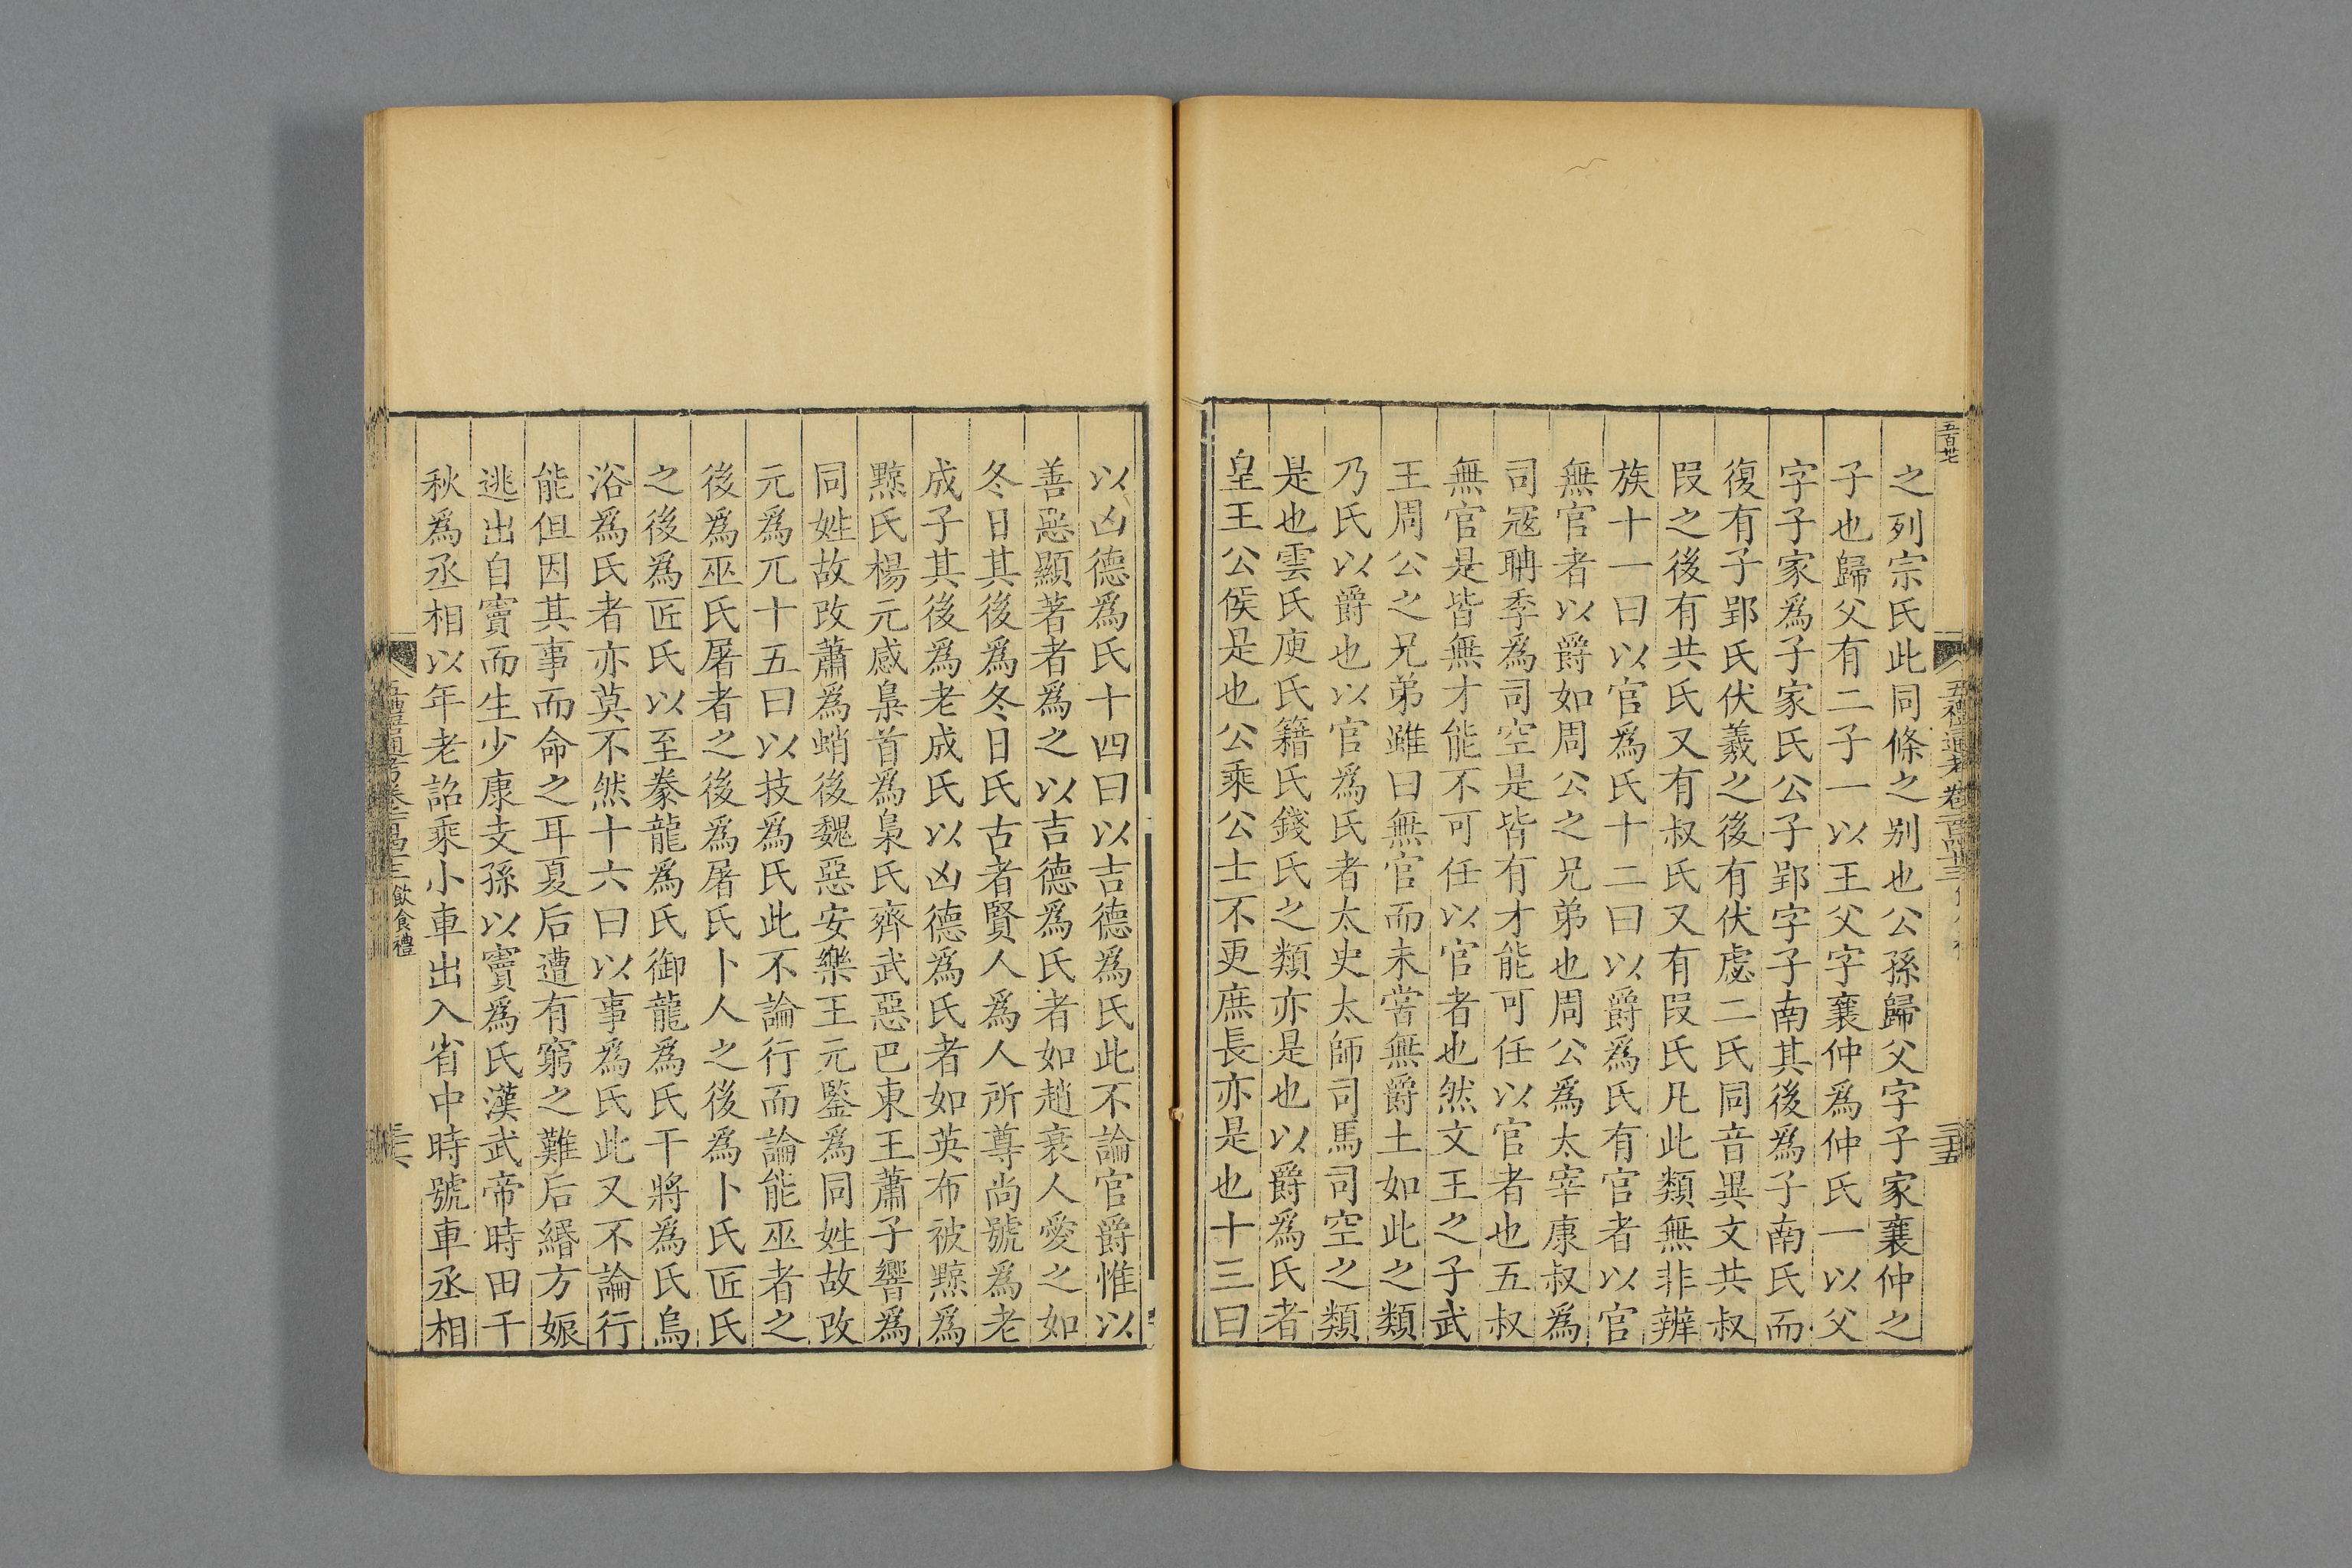 之列宗氏此同條之别也公孫歸父字子家襄仲之
子也歸父有二子一以王父字襄仲爲仲氏一以父
字子家爲子家氏公子郢字子南其後爲子南氏而
復有子郢氏伏羲之後有伏虙二氏同音異文共叔
段之後有共氏又有叔氏又有段氏凡此類無非辨
族十一曰以官爲氏十二曰以爵爲氏有官者以官
無官者以爵如周公之兄弟也周公爲太宰康叔爲
司冦聃季爲司空是皆有才能可任以官者也五叔
無官是皆無才能不可任以官者也然文王之子武
王周公之兄弟雖曰無官而未嘗無爵土如此之類
乃氏以爵也以官爲氏者太史太師司馬司空之類
是也雲氏庾氏籍氏錢氏之類亦是也以爵爲氏者
皇王公侯是也公乘公士不更庶長亦是也十三曰
以凶德爲氏十四曰以吉德爲氏此不論官爵惟以
善惡顯著者爲之以吉德爲氏者如趙衰人愛之如
冬日其後爲冬日氏古者賢人爲人所尊尚號爲老
成子其後爲老成氏以凶德爲氏者如英布被黥爲
黥氏楊元感梟首爲梟氏齊武惡巴東王蕭子響爲
同姓故改蕭爲蛸後魏惡安樂王元鑒爲同姓故改
元爲兀十五曰以技爲氏此不論行而論能巫者之
後爲巫氏屠者之後爲屠氏卜人之後爲卜氏匠氏
之後爲匠氏以至豢龍爲氏御龍爲氏干將爲氏烏
浴爲氏者亦莫不然十六曰以事爲氏此又不論行
能但因其事而命之耳夏后遭有窮之難后緡方娠
逃出自竇而生少康支孫以竇爲氏漢武帝時田千
秋爲丞相以年老詔乘小車出入省中時號車丞相
飲食禮